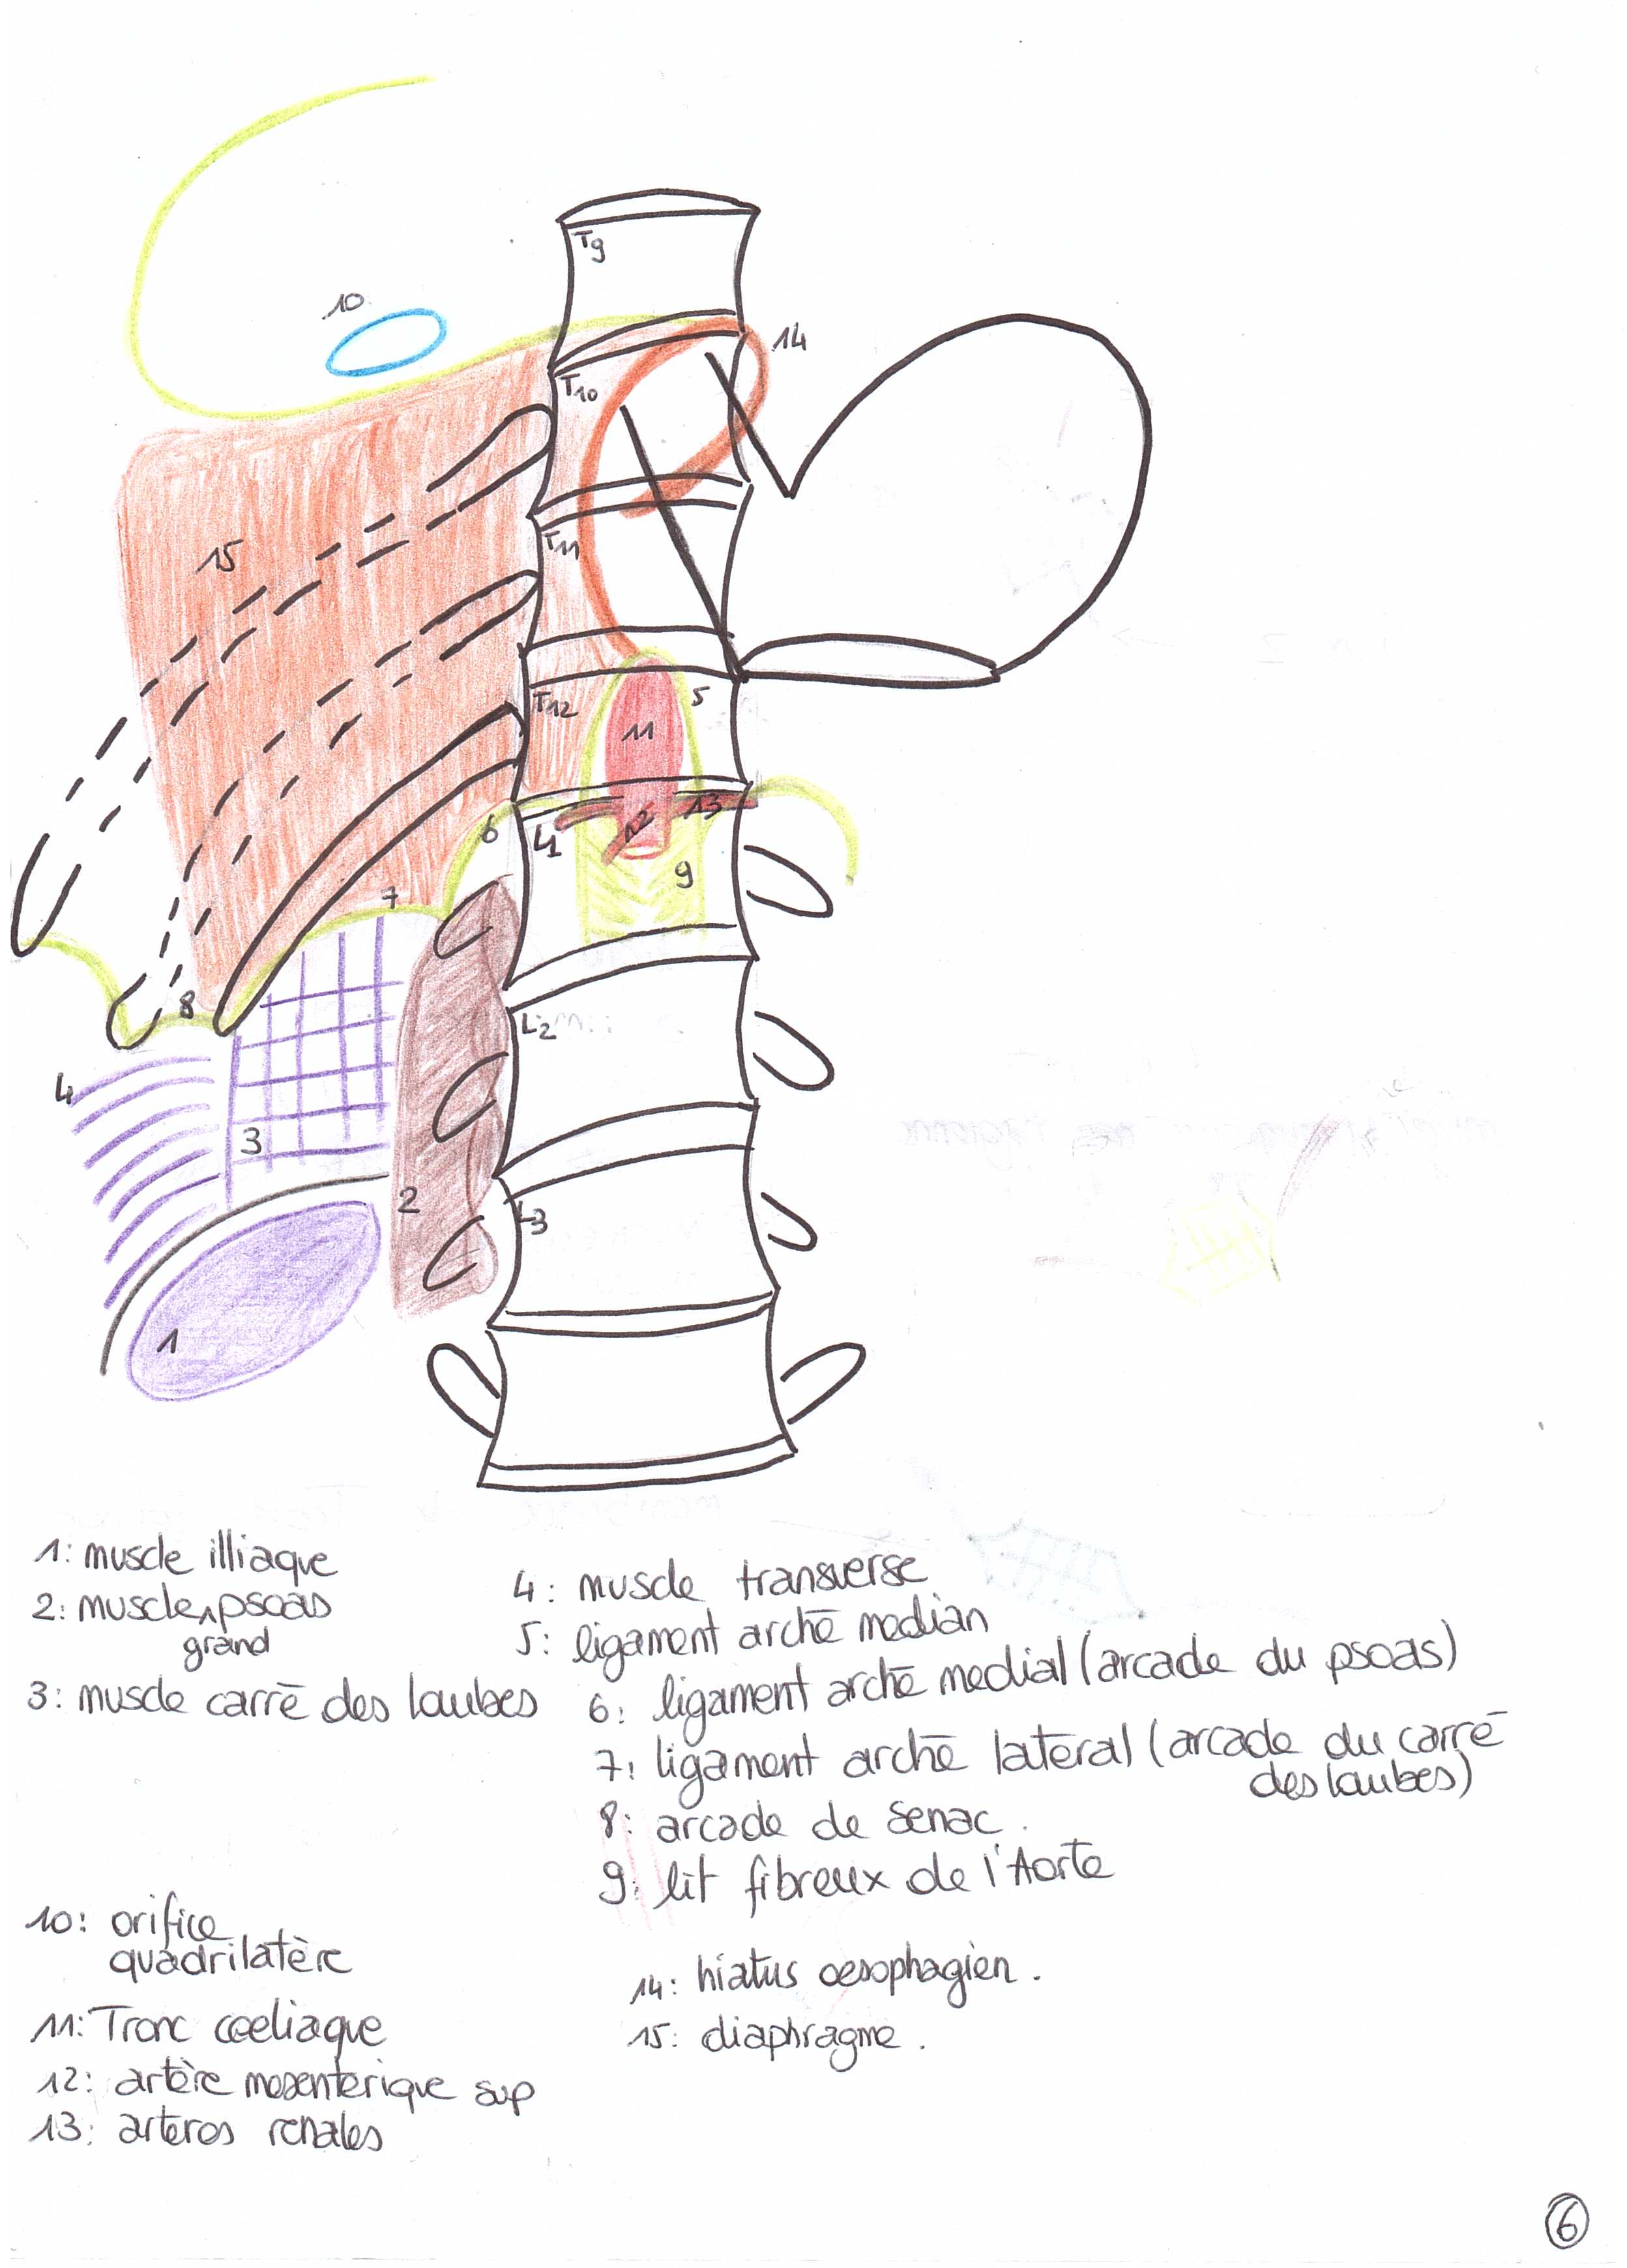 T9
10
14
T10
15
T11
T12
5
11
6
L1
12
13
9
7
8
L2
4
3
2
L3
1
1: muscle illiaque
2: muscle ^ psoas
grand
3: muscle carré des laubes
4: muscle transverse
5: ligament arché median
6: ligament arché medial (arcade du psoas)
7: ligament arché latéral (arcade du carré
des laubes)
8: arcade de senac.
9: lit fibreux de l'Aorte
10: orifice
quadrilatère
11: Tronc coeliaque
12: artère mesenterique sup
13: arteres renales
14: hiatus oesophagien.
15: diaphragme.
6